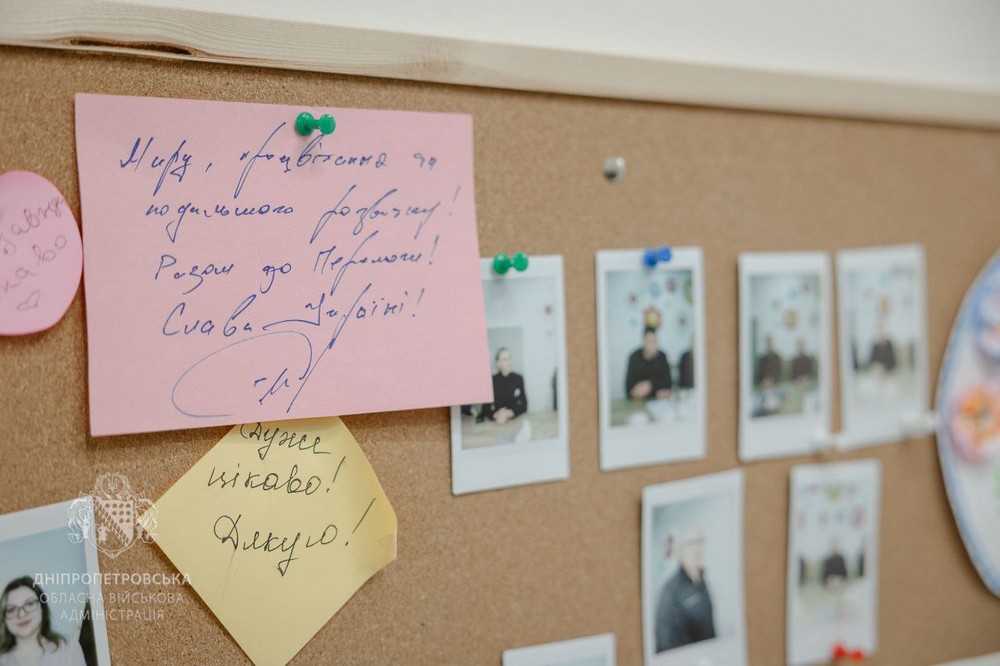 Миру, процвітання та
подальшого розвитку!
Разом до Перемоги!
Слава Україні!
Дуже
цікаво!
Дякую!
ДНІПРОПЕТРОВСЬКА
ОБЛАСНА ВІЙСЬКОВА
АДМІНІСТРАЦІЯ